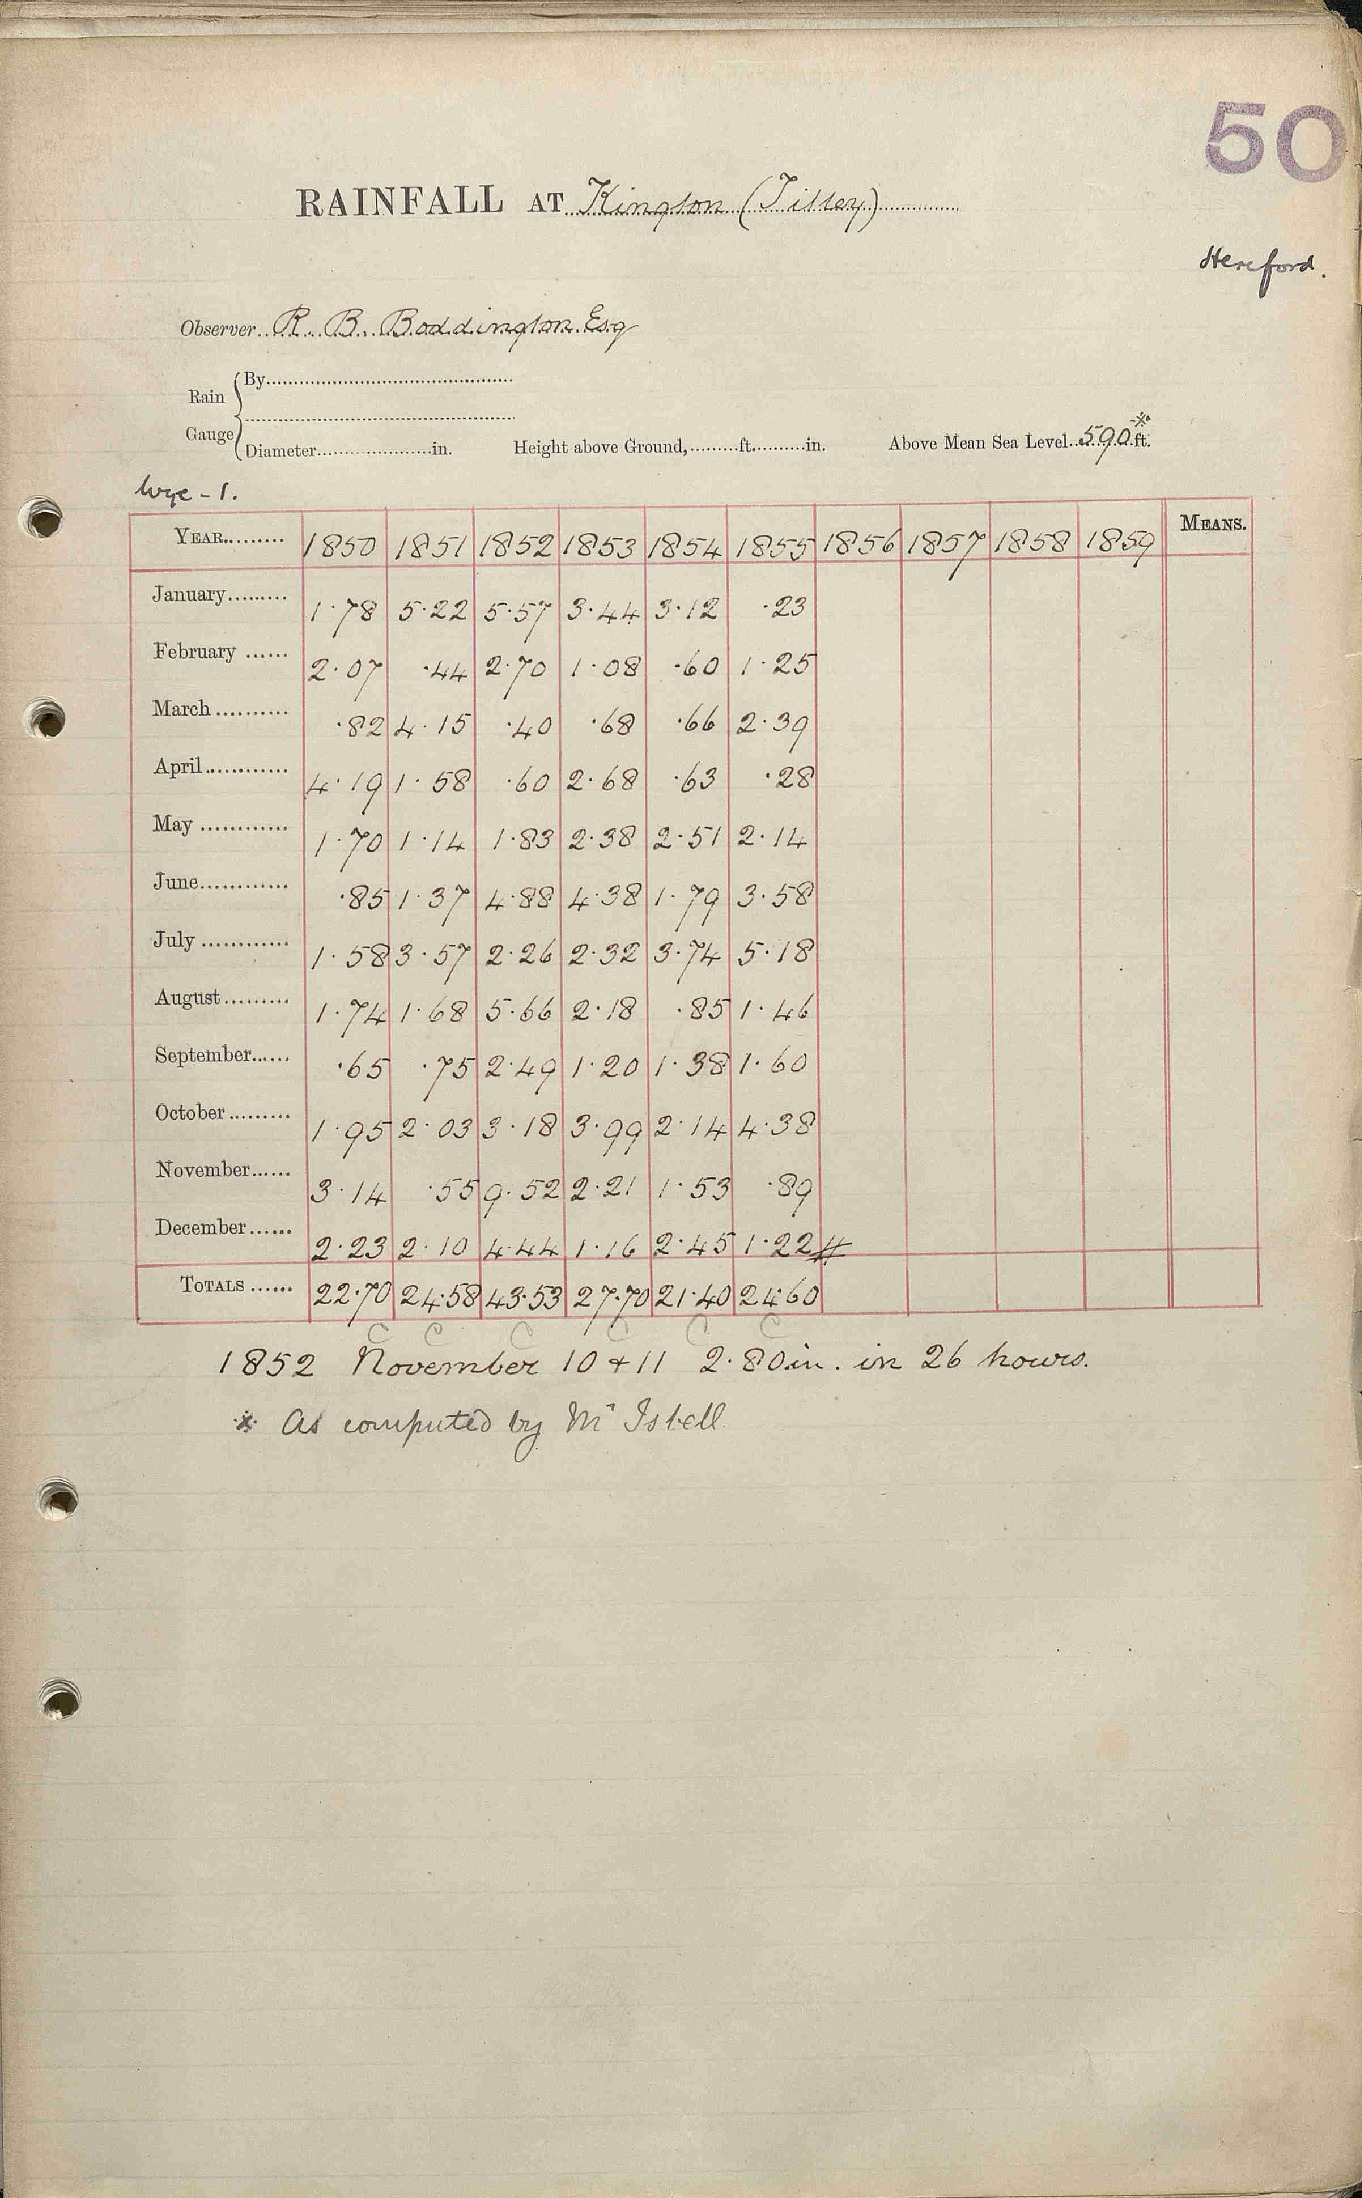 50
RAINFALL AT Kington (Tilley)
Hereford.
Observer R. B. Boddington Esq
Rain Gauge { By
Diameter in. Height above Ground, ft. in. Above Mean Sea Level 590 ft. *
Wye - 1.
YEAR 1850 1851 1852 1853 1854 1855 1856 1857 1858 1859 MEANS.
January 1.78 5.22 5.57 3.44 3.12 .23
February 2.07 .44 2.70 1.08 .60 1.25
March .82 4.15 .40 .68 .66 2.39
April 4.19 1.58 .60 2.68 .63 .28
May 1.70 1.14 1.83 2.38 2.51 2.14
June .85 1.37 4.88 4.38 1.79 3.58
July 1.58 3.57 2.26 2.32 3.74 5.18
August 1.74 1.68 5.66 2.18 .85 1.46
September .65 .75 2.49 1.20 1.38 1.60
October 1.95 2.03 3.18 3.99 2.14 4.38
November 3.14 .55 9.52 2.21 1.53 .89
December 2.23 2.10 4.44 1.16 2.45 1.22 #
TOTALS 22.70 24.58 43.53 27.70 21.40 24.60
C C C C C C
1852 November 10 + 11 2.80 in. in 26 hours.
* As computed by Mr Isbell